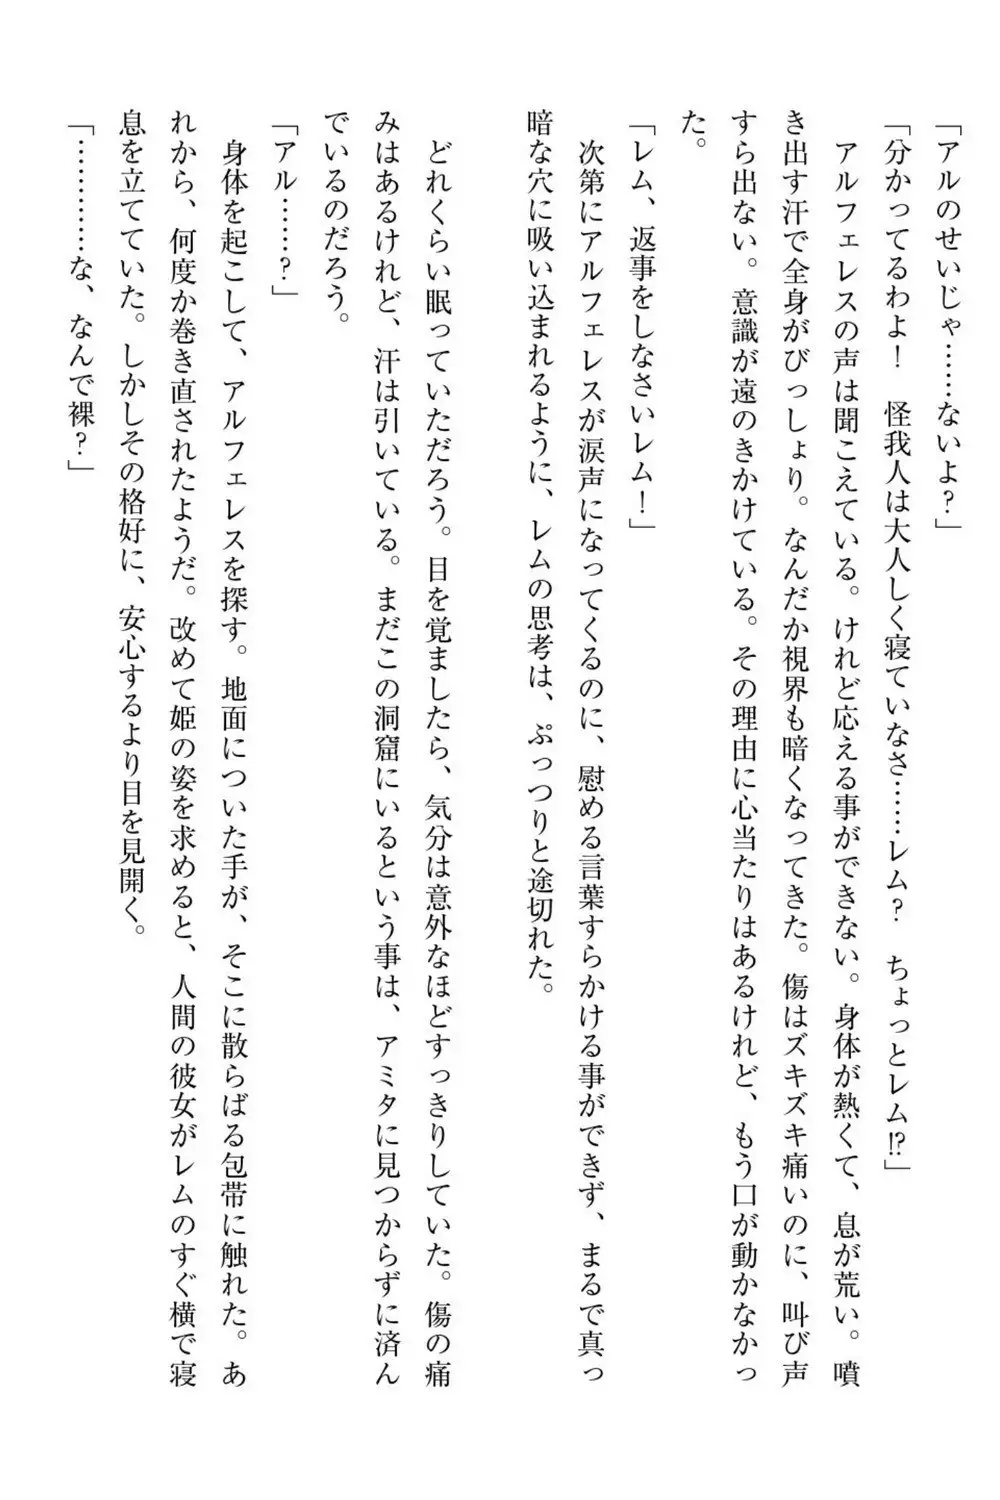 「アルのせいじゃ……ないよ？」
「分かってるわよ！　怪我人は大人しく寝ていなさ……レム？　ちょっとレム⁉」
　アルフェレスの声は聞こえている。けれど応える事ができない。身体が熱くて、息が荒い。噴
き出す汗で全身がびっしょり。なんだか視界も暗くなってきた。傷はズキズキ痛いのに、叫び声
すら出ない。意識が遠のきかけている。その理由に心当たりはあるけれど、もう口が動かなかっ
た。
「レム、返事をしなさいレム！」
　次第にアルフェレスが涙声になってくるのに、慰める言葉すらかける事ができず、まるで真っ
暗な穴に吸い込まれるように、レムの思考は、ぷっつりと途切れた。
　どれくらい眠っていただろう。目を覚ましたら、気分は意外なほどすっきりしていた。傷の痛
みはあるけれど、汗は引いている。まだこの洞窟にいるという事は、アミタに見つからずに済ん
でいるのだろう。
「アル……？」
　身体を起こして、アルフェレスを探す。地面についた手が、そこに散らばる包帯に触れた。あ
れから、何度か巻き直されたようだ。改めて姫の姿を求めると、人間の彼女がレムのすぐ横で寝
息を立てていた。しかしその格好に、安心するより目を見開く。
「…………な、なんで裸？」